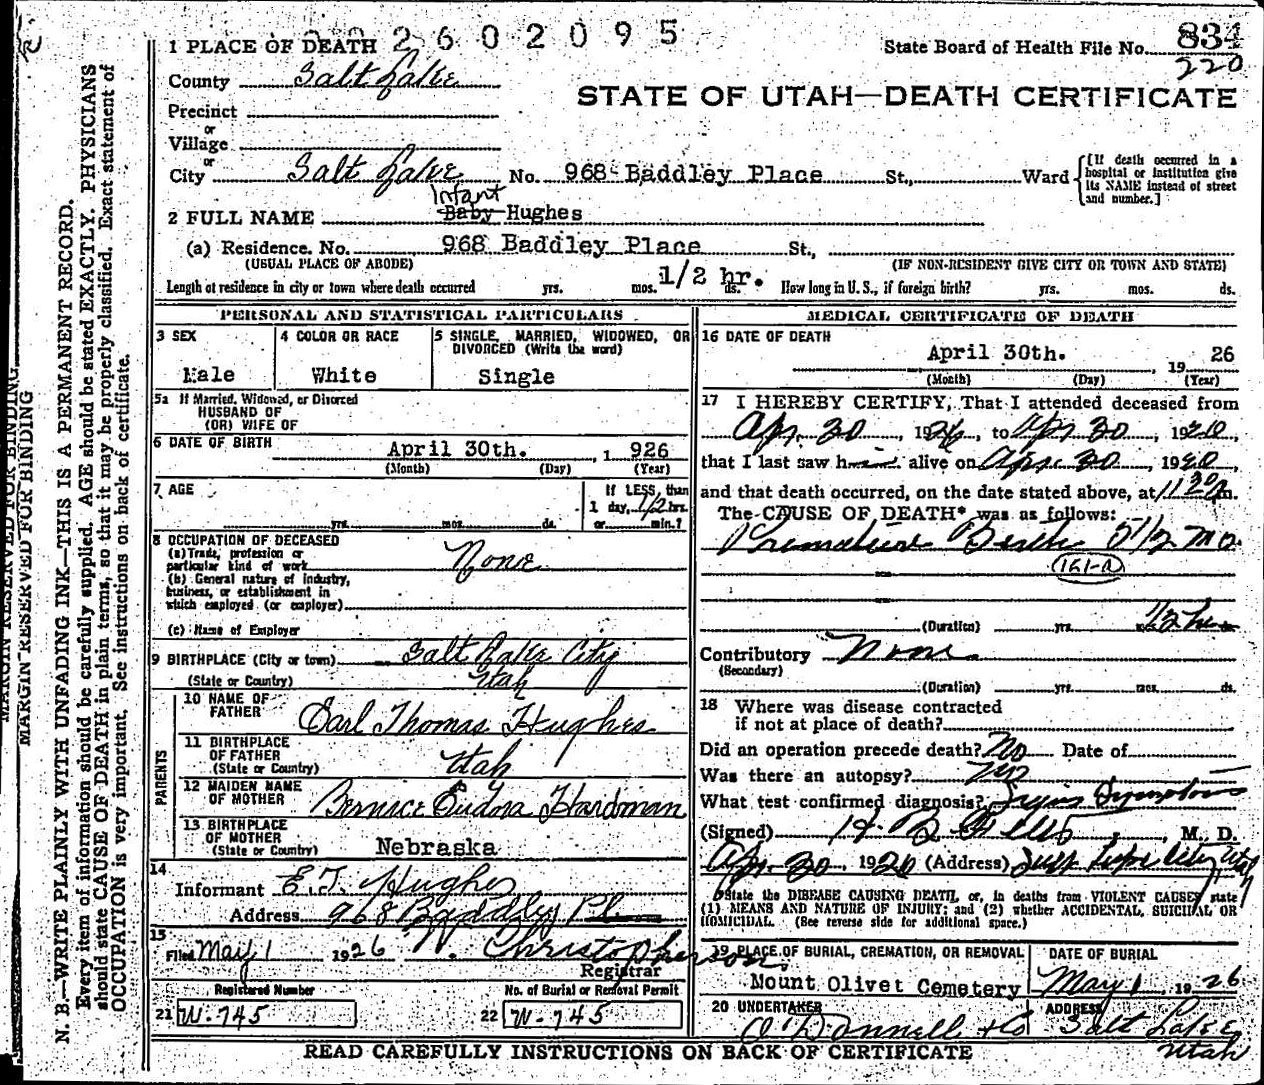 2602095
State Board of Health File No. 834
220
1 PLACE OF DEATH
County Salt Lake
STATE OF UTAH—DEATH CERTIFICATE
Precinct
or
Village
or
City Salt Lake No. 968 Baddley Place St., Ward
[If death occurred in a hospital or institution give its NAME instead of street and number.]
Infant
2 FULL NAME Baby Hughes
(a) Residence. No. 968 Baddley Place St.,
(USUAL PLACE OF ABODE) (IF NON-RESIDENT GIVE CITY OR TOWN AND STATE)
Length of residence in city or town where death occurred yrs. mos. 1/2 hr. ds. How long in U. S., if foreign birth? yrs. mos. ds.
PERSONAL AND STATISTICAL PARTICULARS
3 SEX 4 COLOR OR RACE 5 SINGLE, MARRIED, WIDOWED, OR DIVORCED (Write the word)
Male White Single
5a If Married, Widowed, or Divorced
HUSBAND OF
(OR) WIFE OF
6 DATE OF BIRTH April 30th. , 1 926
(Month) (Day) (Year)
7 AGE If LESS than
1 day, 1/2 hrs.
yrs. mos. ds. or min.?
8 OCCUPATION OF DECEASED
(a) Trade, profession or
particular kind of work None
(b) General nature of industry,
business, or establishment in
which employed (or employer)
(c) Name of Employer
9 BIRTHPLACE (City or town) Salt Lake City
(State or Country) Utah
PARENTS
10 NAME OF
FATHER Earl Thomas Hughes
11 BIRTHPLACE
OF FATHER
(State or Country) Utah
12 MAIDEN NAME
OF MOTHER Bernice Eudora Hardman
13 BIRTHPLACE
OF MOTHER
(State or Country) Nebraska
14
Informant E. T. Hughes
Address 968 Baddley Pl
15
Filed May 1 1926 W. Christopherson
Registrar
Registered Number No. of Burial or Removal Permit
21 W-745 22 W-745
MEDICAL CERTIFICATE OF DEATH
16 DATE OF DEATH
April 30th. , 19 26
(Month) (Day) (Year)
17 I HEREBY CERTIFY, That I attended deceased from
Apr. 30, 1926, to Apr 30, 1920,
that I last saw h alive on Apr. 30, 1920,
and that death occurred, on the date stated above, at 1120 m.
The CAUSE OF DEATH* was as follows:
Premature Birth 5 1/2 mo.
161-a
(Duration) yrs. 1/2 hr
Contributory None
(Secondary)
(Duration) yrs. mos. ds.
18 Where was disease contracted
if not at place of death?
Did an operation precede death? No Date of
Was there an autopsy? No
What test confirmed diagnosis? Symptoms
(Signed) H. , M. D.
Apr. 30 1920 (Address) Salt Lake City, Utah
*State the DISEASE CAUSING DEATH, or, in deaths from VIOLENT CAUSES, state
(1) MEANS AND NATURE OF INJURY; and (2) whether ACCIDENTAL, SUICIDAL OR
HOMICIDAL. (See reverse side for additional space.)
19 PLACE OF BURIAL, CREMATION, OR REMOVAL DATE OF BURIAL
Mount Olivet Cemetery May 1, 1926
20 UNDERTAKER ADDRESS
O'Donnell & Co Salt Lake
Utah
READ CAREFULLY INSTRUCTIONS ON BACK OF CERTIFICATE
MARGIN RESERVED FOR BINDING
MARGIN RESERVED FOR BINDING
N. B.—WRITE PLAINLY WITH UNFADING INK—THIS IS A PERMANENT RECORD.
Every item of information should be carefully supplied. AGE should be stated EXACTLY. PHYSICIANS
should state CAUSE OF DEATH in plain terms, so that it may be properly classified. Exact statement of
OCCUPATION is very important. See instructions on back of certificate.